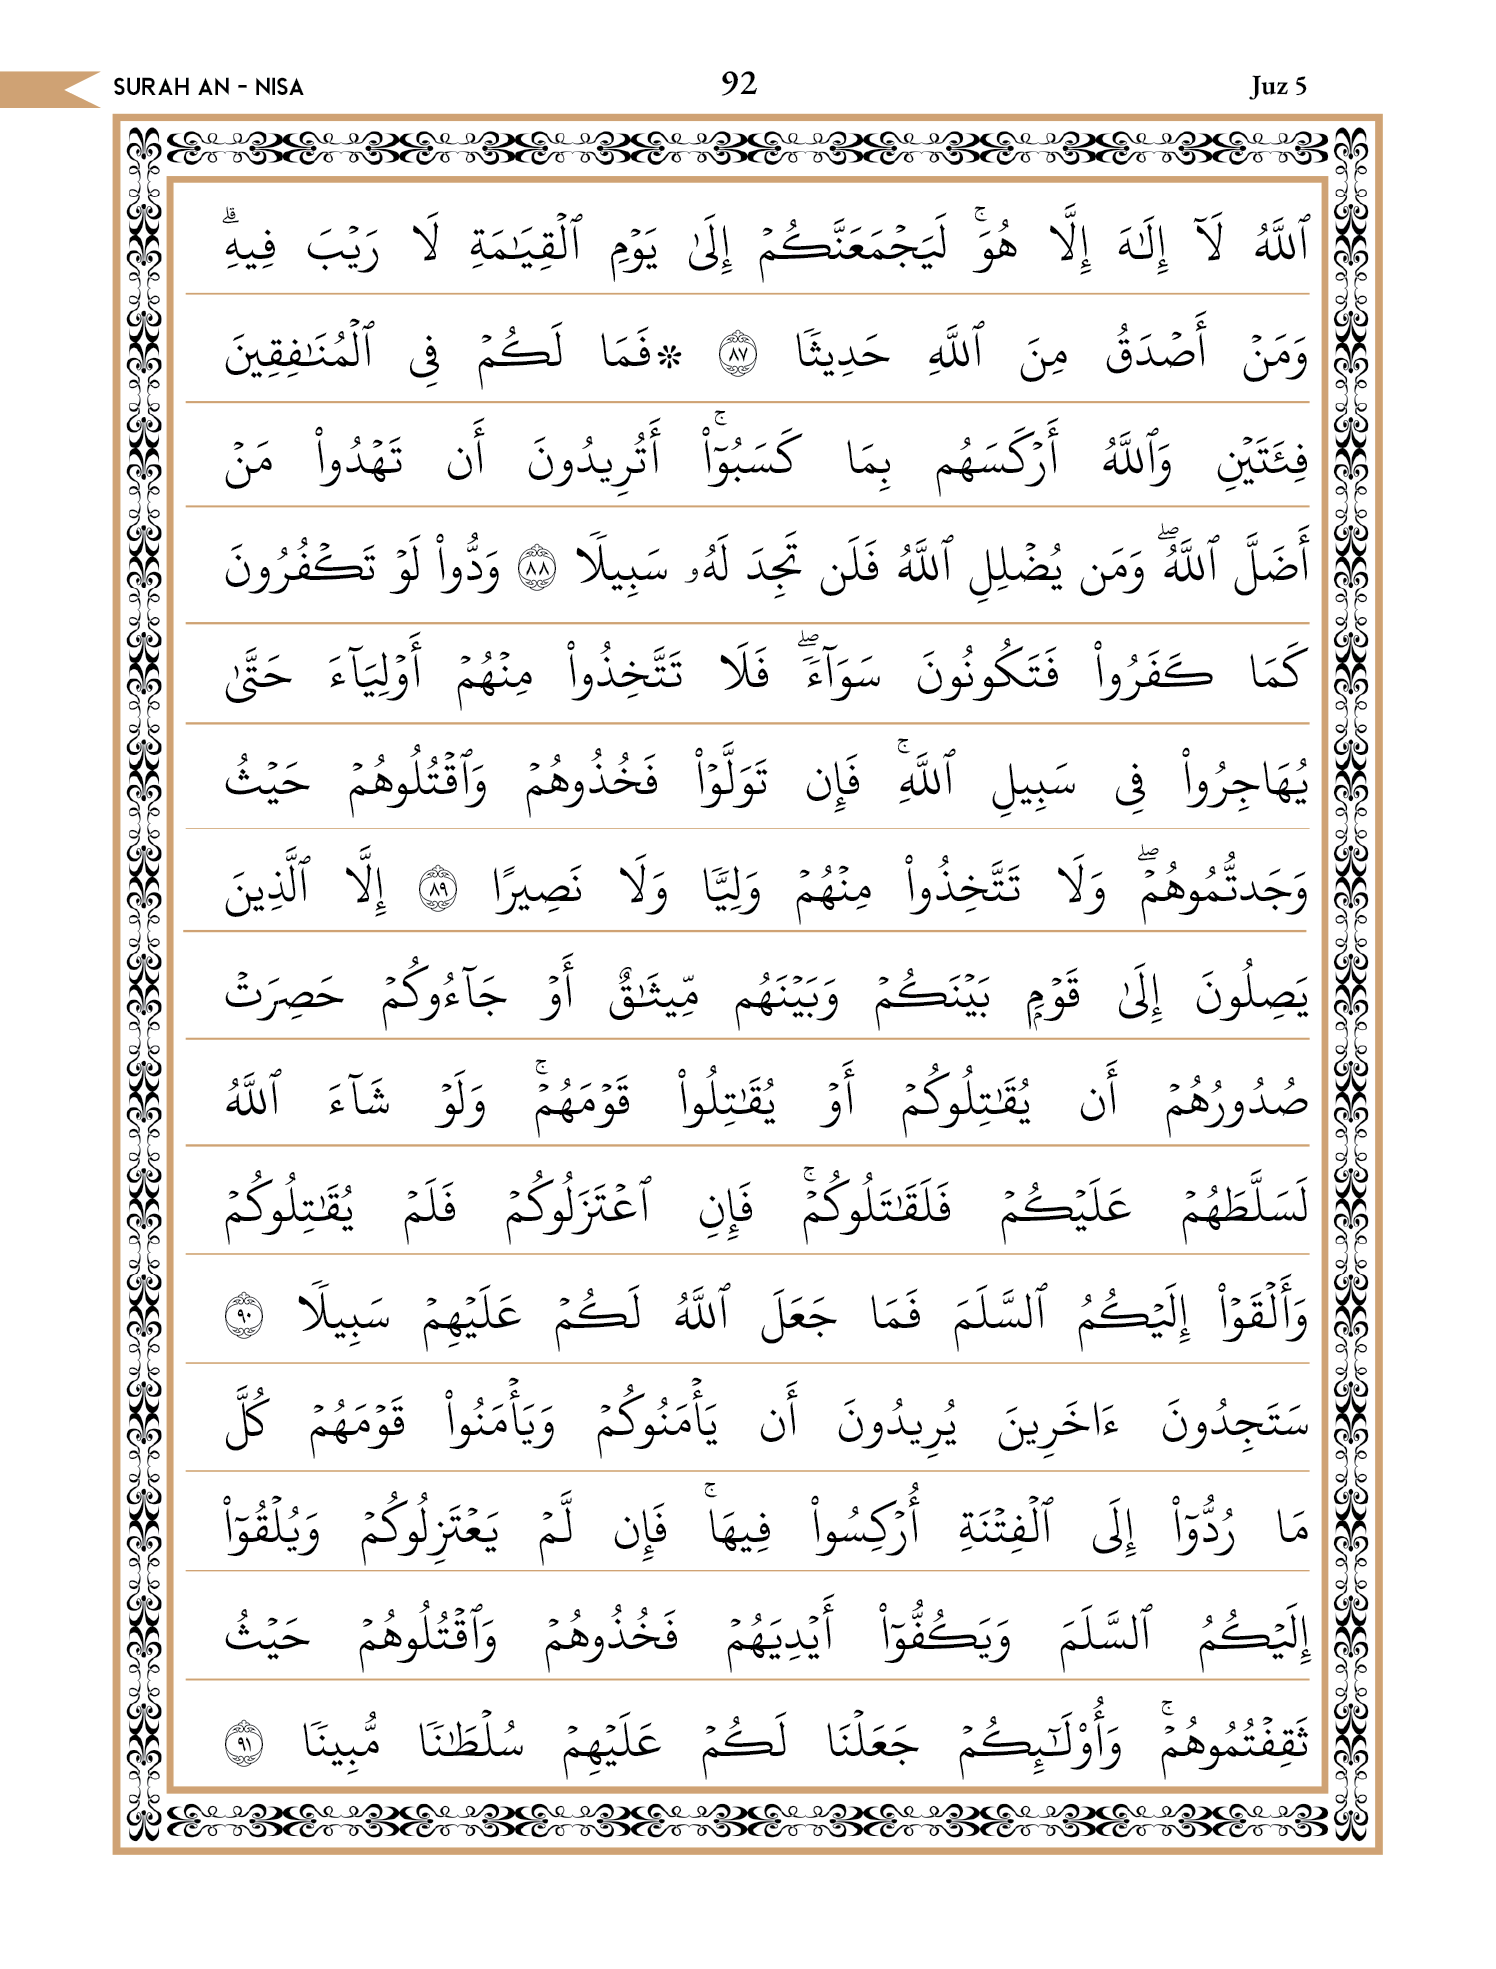 SURAH AN - NISA 92 Juz 5
ٱللَّهُ لَآ إِلَـٰهَ إِلَّا هُوَۚ لَيَجۡمَعَنَّكُمۡ إِلَىٰ يَوۡمِ ٱلۡقِيَـٰمَةِ لَا رَيۡبَ فِيهِۗ
وَمَنۡ أَصۡدَقُ مِنَ ٱللَّهِ حَدِيثٗا ٨٧ ۞فَمَا لَكُمۡ فِي ٱلۡمُنَـٰفِقِينَ
فِئَتَيۡنِ وَٱللَّهُ أَرۡكَسَهُم بِمَا كَسَبُوٓاْۚ أَتُرِيدُونَ أَن تَهۡدُواْ مَنۡ
أَضَلَّ ٱللَّهُۖ وَمَن يُضۡلِلِ ٱللَّهُ فَلَن تَجِدَ لَهُۥ سَبِيلٗا ٨٨ وَدُّواْ لَوۡ تَكۡفُرُونَ
كَمَا كَفَرُواْ فَتَكُونُونَ سَوَآءٗۖ فَلَا تَتَّخِذُواْ مِنۡهُمۡ أَوۡلِيَآءَ حَتَّىٰ
يُهَاجِرُواْ فِي سَبِيلِ ٱللَّهِۚ فَإِن تَوَلَّوۡاْ فَخُذُوهُمۡ وَٱقۡتُلُوهُمۡ حَيۡثُ
وَجَدتُّمُوهُمۡۖ وَلَا تَتَّخِذُواْ مِنۡهُمۡ وَلِيّٗا وَلَا نَصِيرًا ٨٩ إِلَّا ٱلَّذِينَ
يَصِلُونَ إِلَىٰ قَوۡمِۭ بَيۡنَكُمۡ وَبَيۡنَهُم مِّيثَـٰقٌ أَوۡ جَآءُوكُمۡ حَصِرَتۡ
صُدُورُهُمۡ أَن يُقَـٰتِلُوكُمۡ أَوۡ يُقَـٰتِلُواْ قَوۡمَهُمۡۚ وَلَوۡ شَآءَ ٱللَّهُ
لَسَلَّطَهُمۡ عَلَيۡكُمۡ فَلَقَـٰتَلُوكُمۡۚ فَإِنِ ٱعۡتَزَلُوكُمۡ فَلَمۡ يُقَـٰتِلُوكُمۡ
وَأَلۡقَوۡاْ إِلَيۡكُمُ ٱلسَّلَمَ فَمَا جَعَلَ ٱللَّهُ لَكُمۡ عَلَيۡهِمۡ سَبِيلٗا ٩٠
سَتَجِدُونَ ءَاخَرِينَ يُرِيدُونَ أَن يَأۡمَنُوكُمۡ وَيَأۡمَنُواْ قَوۡمَهُمۡ كُلَّ
مَا رُدُّوٓاْ إِلَى ٱلۡفِتۡنَةِ أُرۡكِسُواْ فِيهَاۚ فَإِن لَّمۡ يَعۡتَزِلُوكُمۡ وَيُلۡقُوٓاْ
إِلَيۡكُمُ ٱلسَّلَمَ وَيَكُفُّوٓاْ أَيۡدِيَهُمۡ فَخُذُوهُمۡ وَٱقۡتُلُوهُمۡ حَيۡثُ
ثَقِفۡتُمُوهُمۡۚ وَأُوْلَـٰٓئِكُمۡ جَعَلۡنَا لَكُمۡ عَلَيۡهِمۡ سُلۡطَـٰنٗا مُّبِينٗا ٩١